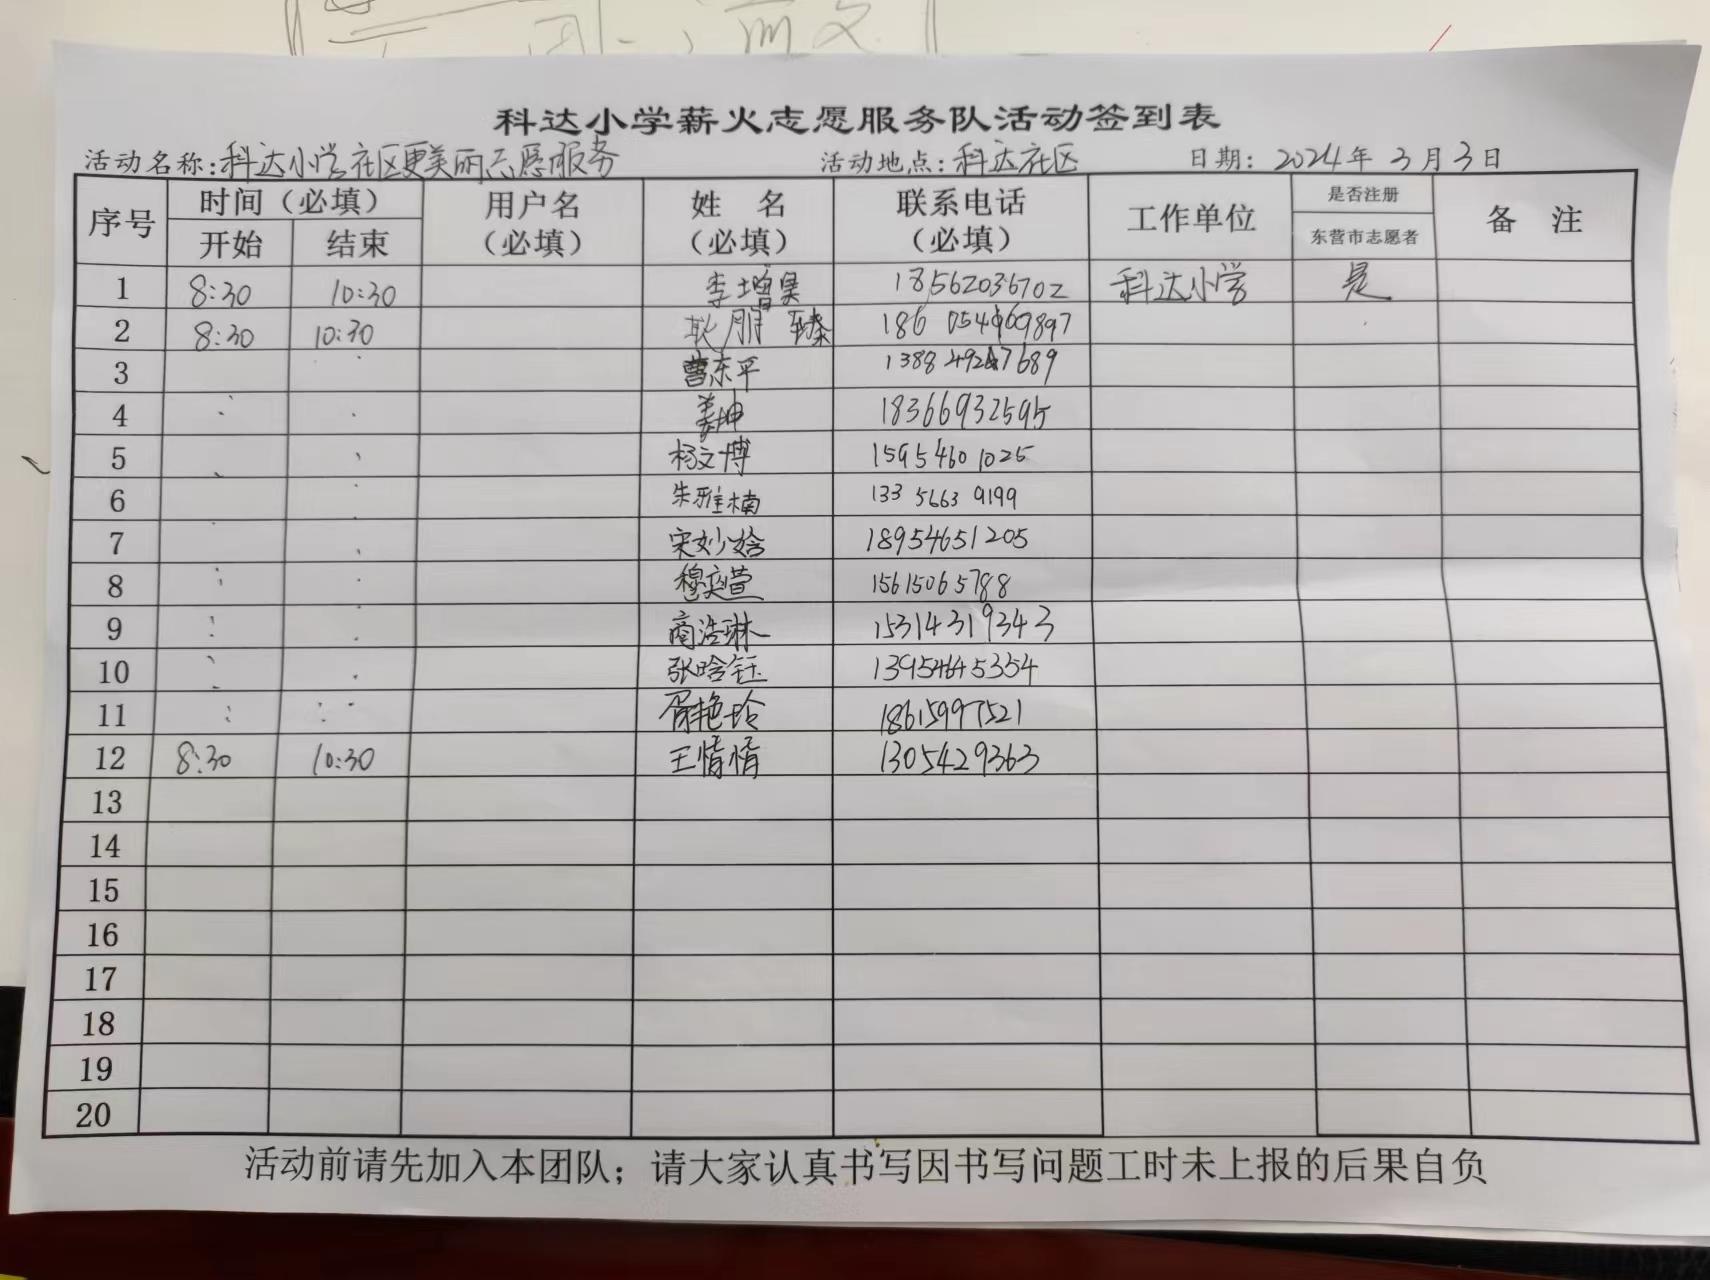 科达小学薪火志愿服务队活动签到表
活动名称:科达小学社区更美丽志愿服务 活动地点:科达社区 日期: 2024年 3月 3日
序号 时间（必填） 用户名（必填） 姓 名（必填） 联系电话（必填） 工作单位 是否注册东营市志愿者 备 注
开始 结束
1 8:30 10:30 李增昊 18562036702 科达小学 是
2 8:30 10:30 耿 186
3 曹东平
4 姜坤 18366932595
5 杨文博 15954601025
6 朱雅楠 133 5663 9199
7 宋妙晗 18954651205
8 穆奕萱 15615065788
9 商浩琳 15314319343
10 张晗钰 13954645354
11 胥艳玲 18615997521
12 王情情 1305429363
13
14
15
16
17
18
19
20
活动前请先加入本团队；请大家认真书写因书写问题工时未上报的后果自负